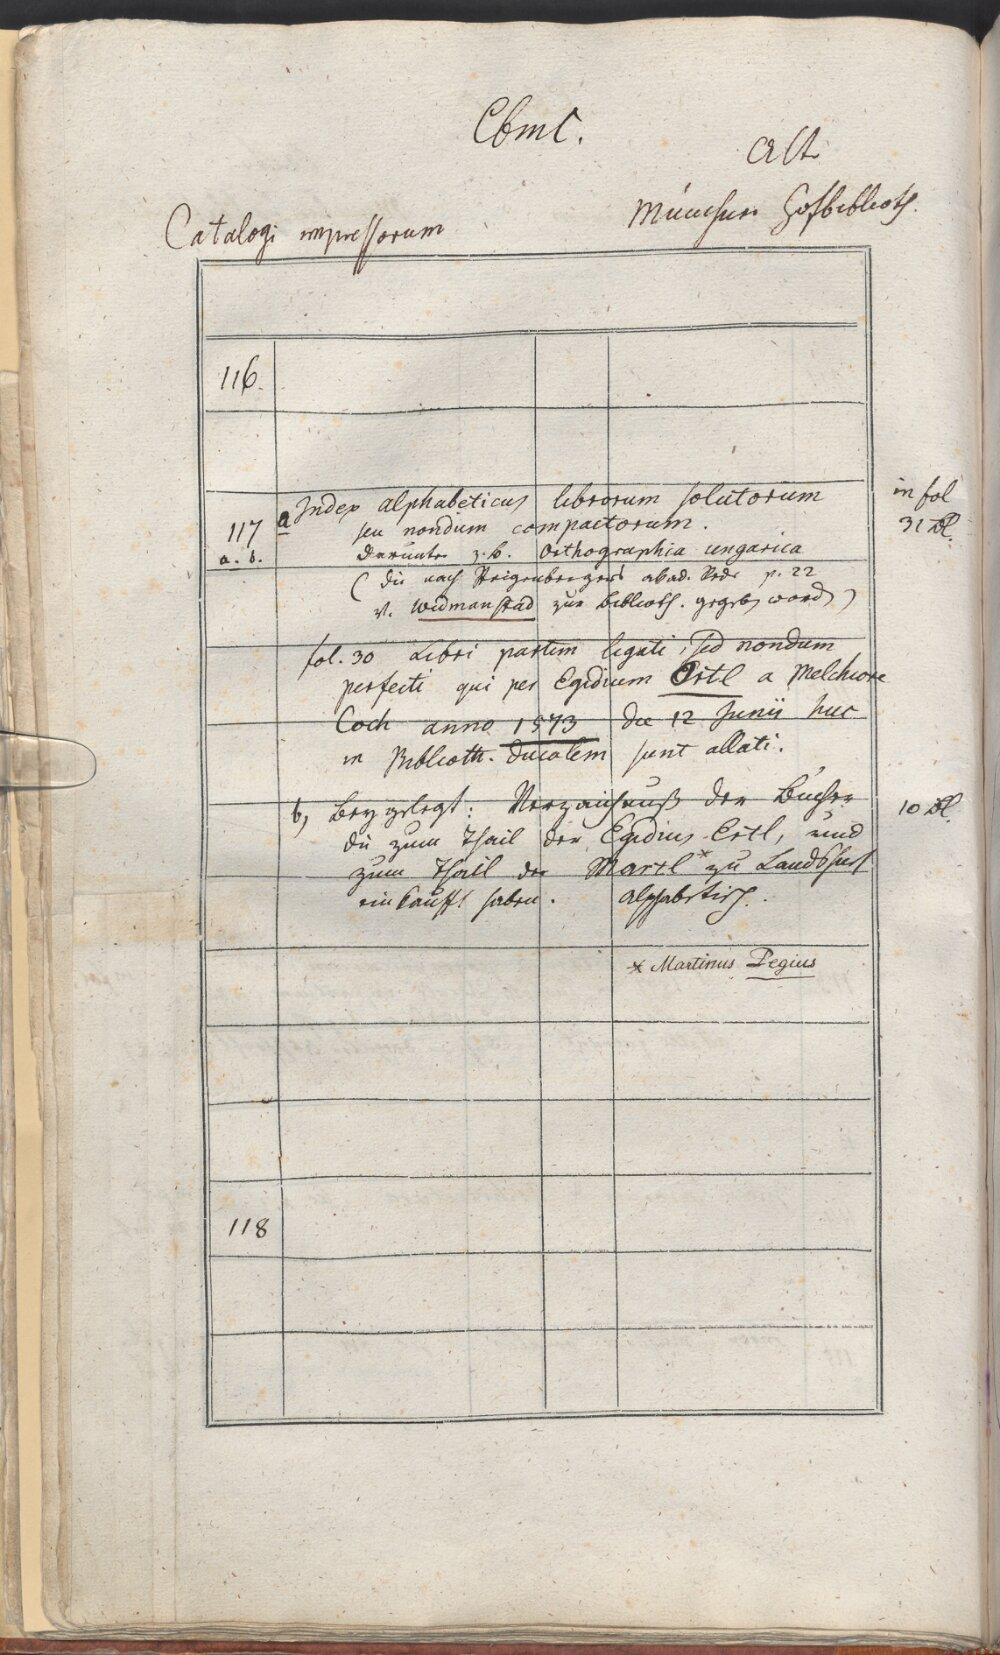 Cbm C.
Alte
Münchner Hofbiblioth.
Catalogi impressorum
116.
in fol
a Index alphabeticus librorum solutorum
31 Bl.
117
seu nondum compactorum.
a. b.
darunter z. b. Orthographia ungarica
(die nach Steigenbergers akad. Rede p. 22
v. Widmanstad zur Biblioth. gegeb. word.)
fol. 30 Libri partim ligati, sed nondum
perfecti qui per Egidium Ortl a Melchiore
Coch anno 1573 die 12 Junii huc
in Biblioth. ducalem sunt allati.
b) Beygelegt: Verzaichnuß der Bücher
10 Bl.
die zum Thail der Egidius Ertl, und
zum Thail der Martl* zu Landshuet
einkaufft haben. alphabetisch.
* Martinus Pegius
118